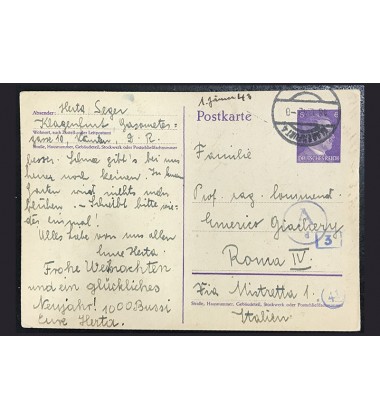 Herta Seger
Absender:
Klagenfurt, Gasometer-
Wohnort, auch Zustell- oder Leitpostamt
gasse 10, Kärnten, D. R.
Straße, Hausnummer, Gebäudeteil, Stockwerk oder Postschließfachnummer
besser. Schnee gibt's bei uns
heuer noch keinen. Im
Garten wird nichts mehr
blühen. – Schreibt bitte wie-
der einmal!
Alles liebe von uns allen
Eure Herta.
Frohe Weihnachten
und ein glückliches
Neujahr! 1000 Bussi
Eure Herta
1. Jänner 43
Postkarte
6
DEUTSCHES REICH
KLAGENFURT
Familie
Prof. rag. commend.
Emerico
Roma IV.
Via Mistretta 1.
Straße, Hausnummer, Gebäudeteil, Stockwerk oder Postschließfachnummer
Italien
A
3
4